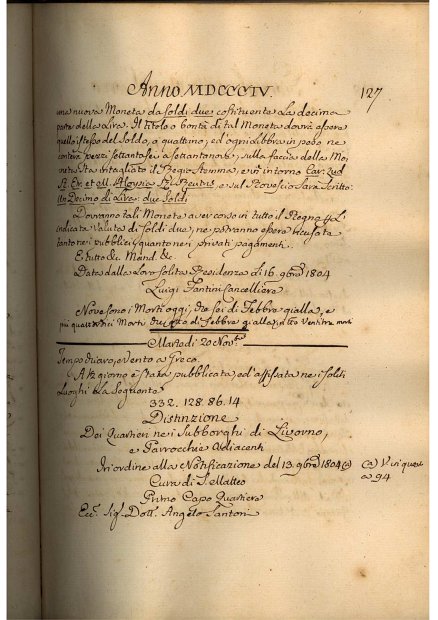 Anno MDCCCIV. 127
una nuova Moneta da soldi due costituente la decima
parte della Lira. Il titolo o bontà di tal Moneta dovrà essere
quello istesso del Soldo, o quattrino; ed ogni libbra in peso ne
conterrà pezzi settantasei a settantanove, sulla faccia della Mo-
neta sarà intagliato il Regio Stemma, e in intorno Car: Lud
et Aloysia, e sul Rovescio sarà scritto:
Un Decimo di Lira: due Soldi
Dovranno tali Monete aver corso in tutto il Regno p. L'
indicata valuta di soldi due, ne potranno essere ricusate
tanto nei pubblici, quanto nei privati pagamenti.
E tutto &c. Mand. &c.
Data dalla loro solita Residenza di 16. 9bre 1804
Luigi Fantini Cancelliere
Nove sono i Morti oggi, tre sei di Febbre gialla, e
Morti di Febbre gialla, in tto Ventitre morti
Martedì 20 Nov.re
Tempo vario, e Vento a Greco.
A 12 giorno è stata pubblicata, ed affissata nei soliti
Luoghi la Seguente
332. 128. 86. 14
Distinzione
Dei Quartieri nei Subborghi di Livorno,
e Parrocchie Adiacenti
In ordine alla Notificazione del 13. 9bre 1804 (a) (a) Vi si quei
a 94
Cura di S. Matteo
Primo Capo Quartiere
Ecc. Sig. Dott. Angelo Santoni